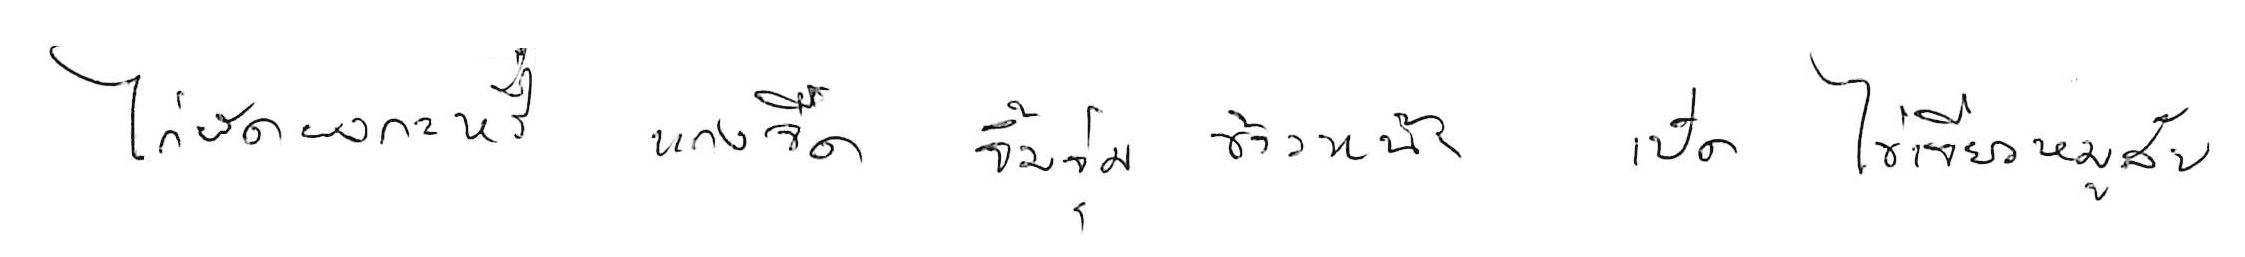 ไก่ผัดผงกะหรี่ แกงจืด จิ้มจุ่ม ข้าวหน้า เป็ด ไข่เจียวหมูสับ